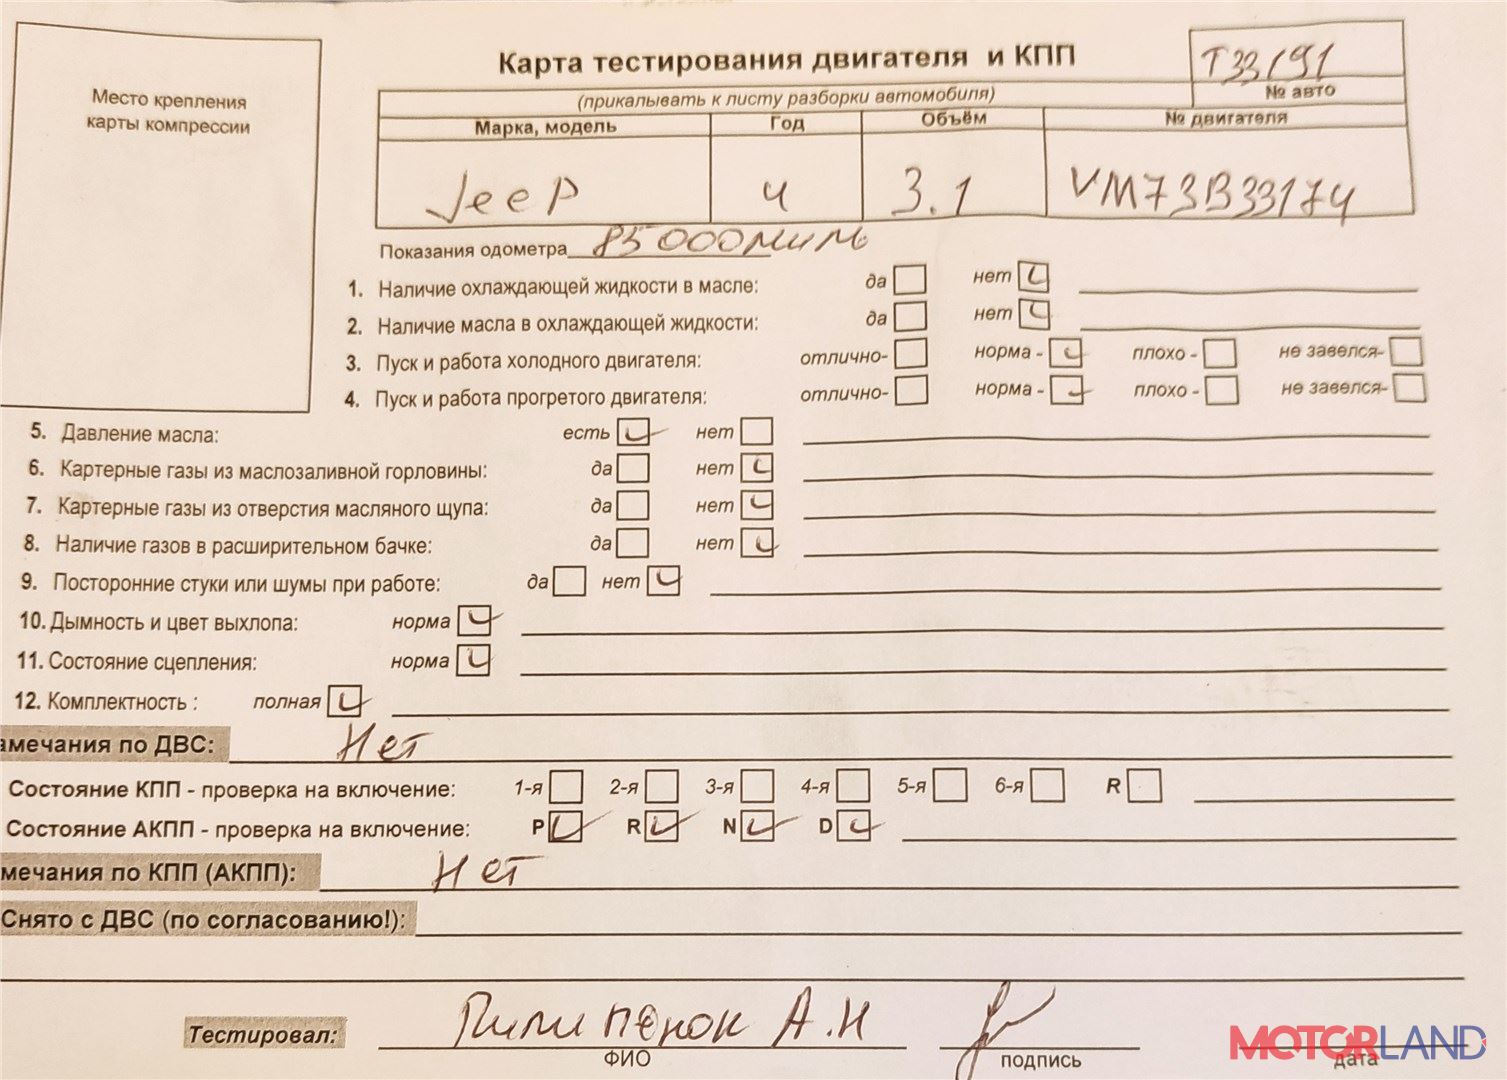 Место крепления
карты компрессии
Карта тестирования двигателя и КПП
Т33191
№ авто
(прикалывать к листу разборки автомобиля)
Марка, модель Год Объём № двигателя
Jeep 4 3.1 VM73B33174
Показания одометра 85000миль
1. Наличие охлаждающей жидкости в масле: да нет
2. Наличие масла в охлаждающей жидкости: да нет
3. Пуск и работа холодного двигателя: отлично- норма - плохо - не завелся-
4. Пуск и работа прогретого двигателя: отлично- норма - плохо - не завелся-
5. Давление масла: есть нет
6. Картерные газы из маслозаливной горловины: да нет
7. Картерные газы из отверстия масляного щупа: да нет
8. Наличие газов в расширительном бачке: да нет
9. Посторонние стуки или шумы при работе: да нет
10. Дымность и цвет выхлопа: норма
11. Состояние сцепления: норма
12. Комплектность : полная
амечания по ДВС: Нет
Состояние КПП - проверка на включение: 1-я 2-я 3-я 4-я 5-я 6-я R
Состояние АКПП - проверка на включение: P R N D
мечания по КПП (АКПП): Нет
Снято с ДВС (по согласованию!):
Тестировал: Пилипенок А.Н
ФИО подпись дата
MOTORLAND